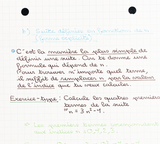 C'est la manière la plus simple de
définir une suite. On te donne une
formule qui dépend de n.
Pour trouver n'importe quel terme,
il suffit de remplacer n par la valeur
de l'indice que tu veux calculer.
Exercice-type : Calcule les quatre premiers
termes de la suite